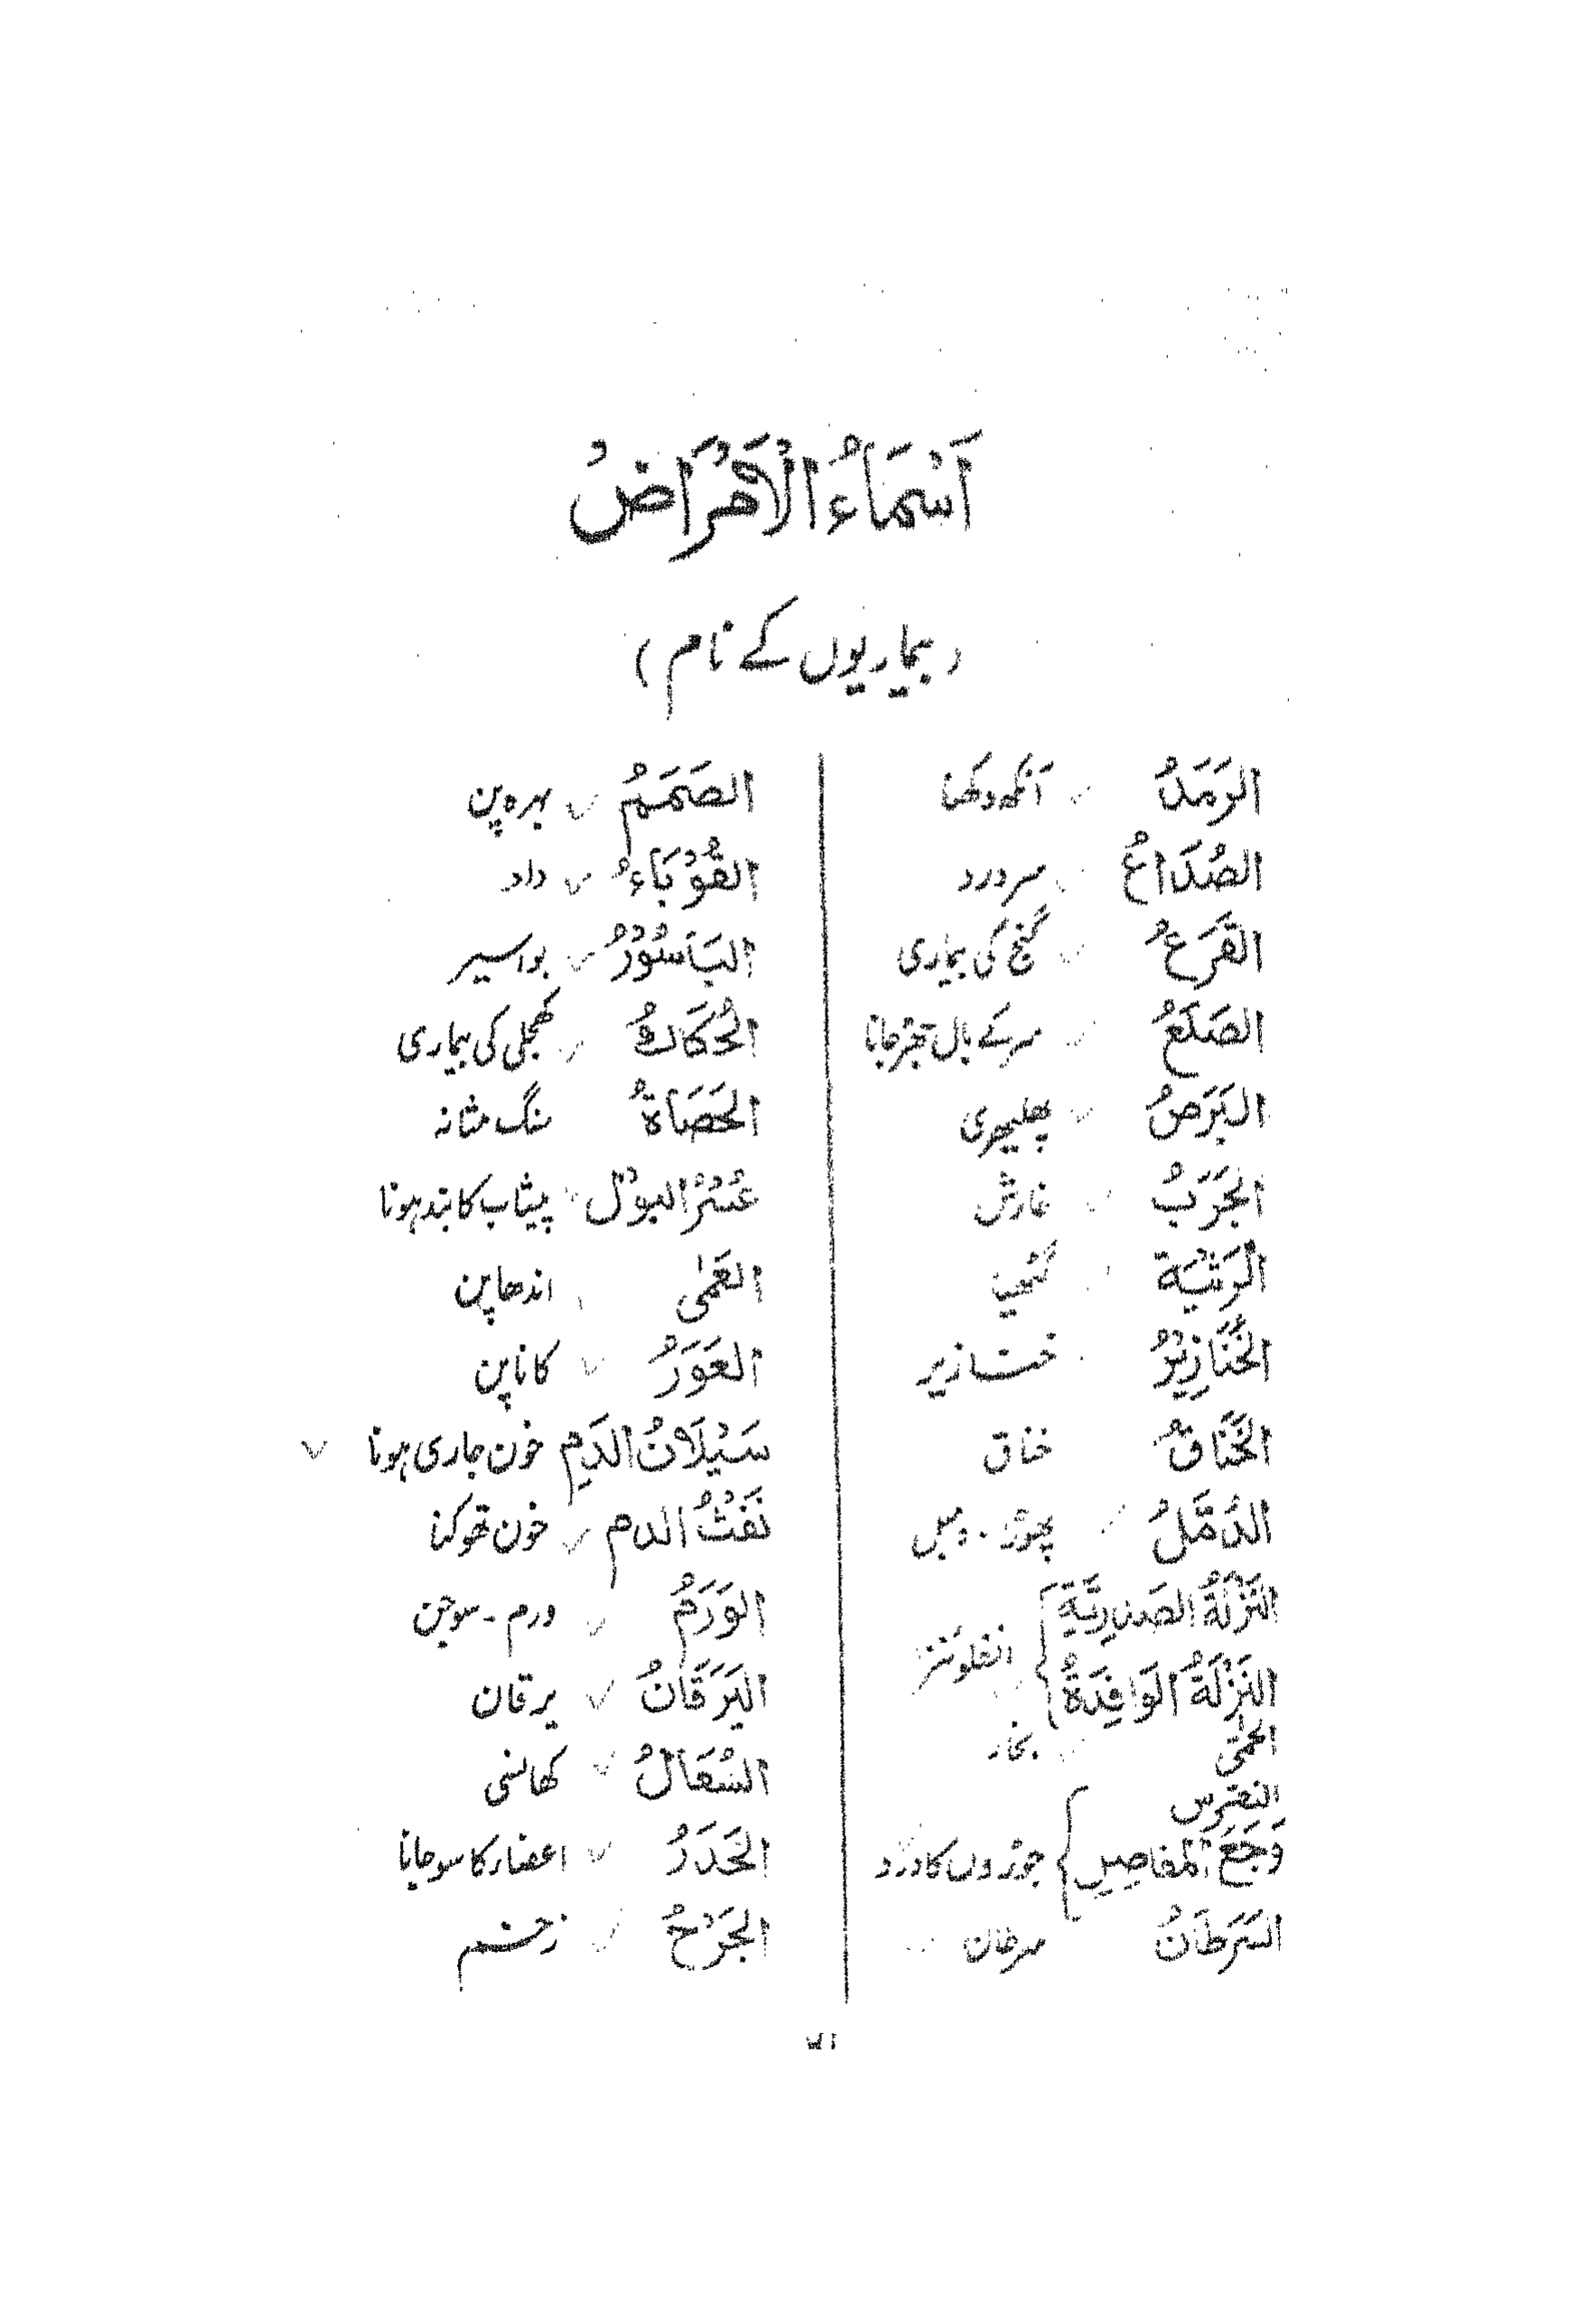 اَسْمَاءُ الْاَمْرَاضْ
(بیماریوں کے نام)
الرَمَدُ آنکھ دکھنا
الصُدَاعُ سر درد
القَرَعُ گنج کی بیماری
الصَلَعُ سر کے بال جھڑ جانا
البَرَصُ پھلبھری
الجَرَبُ خارش
الرَثْيَة گٹھیا
الخَنَازِيْرُ خنازیر
الخُنَاقُ خناق
الدُمَّلُ پھوڑا۔ دمبل
النَزْلَةُ الصَدْرِيَّةِ
انفلوئنزا
النَزْلَةُ الوَافِدَةُ
الحمّٰی بخار
النقرس
وَجَعَ المفاصِلِ جوڑوں کا درد
السَرَطَانُ سرطان
الصَمَمُ بہرہ پن
القُوْبَاءُ داد
البَاسُوْرُ بواسیر
الحُكَاكُ کھجلی کی بیماری
الحَصَاةُ سنگ مثانہ
عُسْرُ البوْل پیشاب کا بند ہونا
العَمٰی اندھا پن
العَوَرُ کانا پن
سَيْلَانُ الدَمِ خون جاری ہونا
نَفَثُ الدم خون تھوکنا
الوَرَمُ ورم - سوجن
اليَرَقَانُ یرقان
السُعَالُ کھانسی
الخَدَرُ اعضاء کا سو جانا
الجَرْحُ زخم